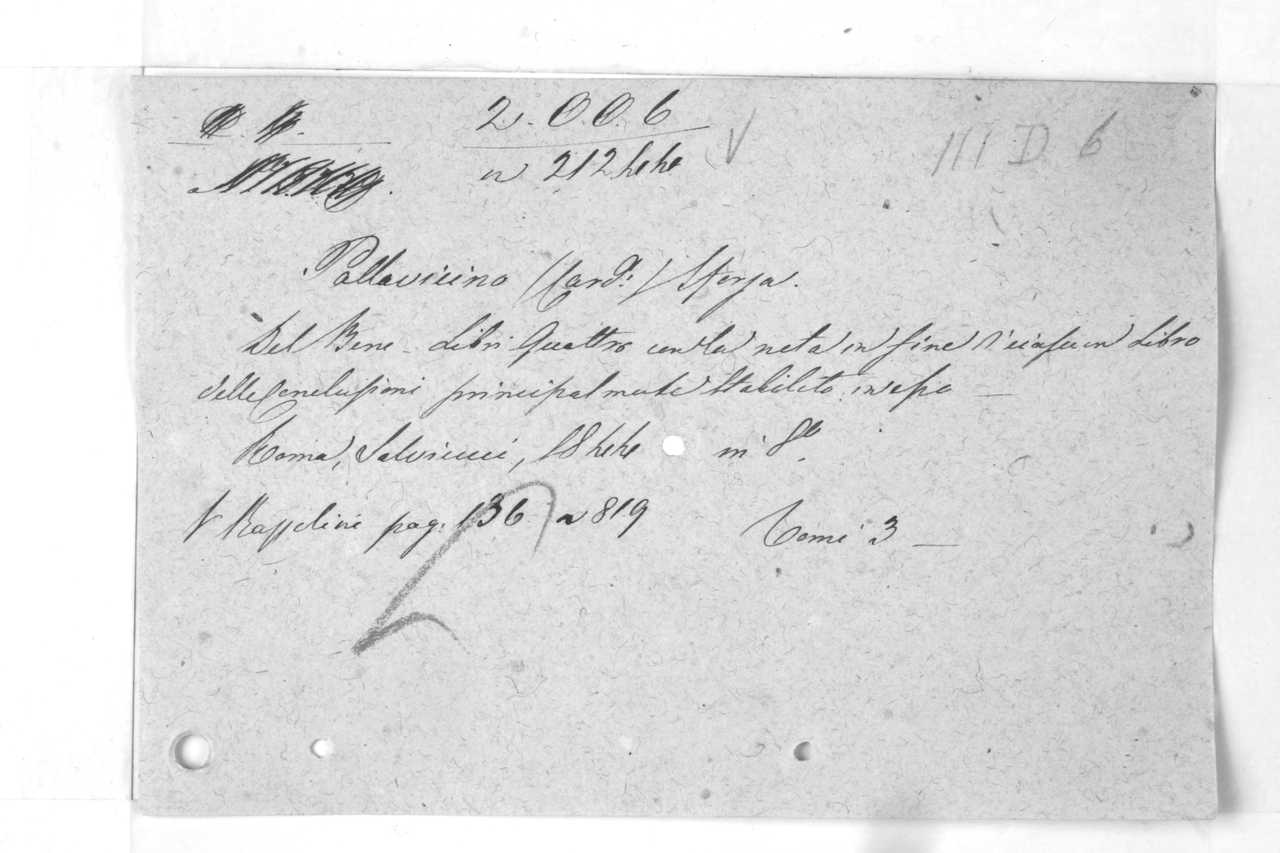 2. O. O. 6 V III D 6
n 21244
Pallavicino (Card.e) Sforza.
Del Bene - Libri Quattro con la nota in fine d'ciascun Libro
delle conclusioni principalmente stabilite in esso —
Roma, Salviucci, 1844 in 8.o
pag: 136 a 819 Tomi 3 —